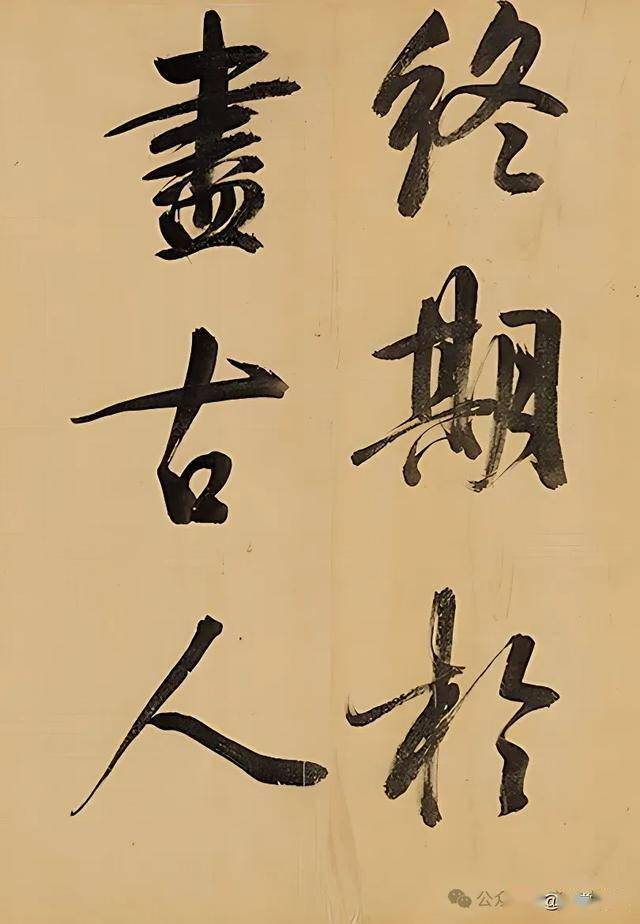 终期於
盡古人
公众
@